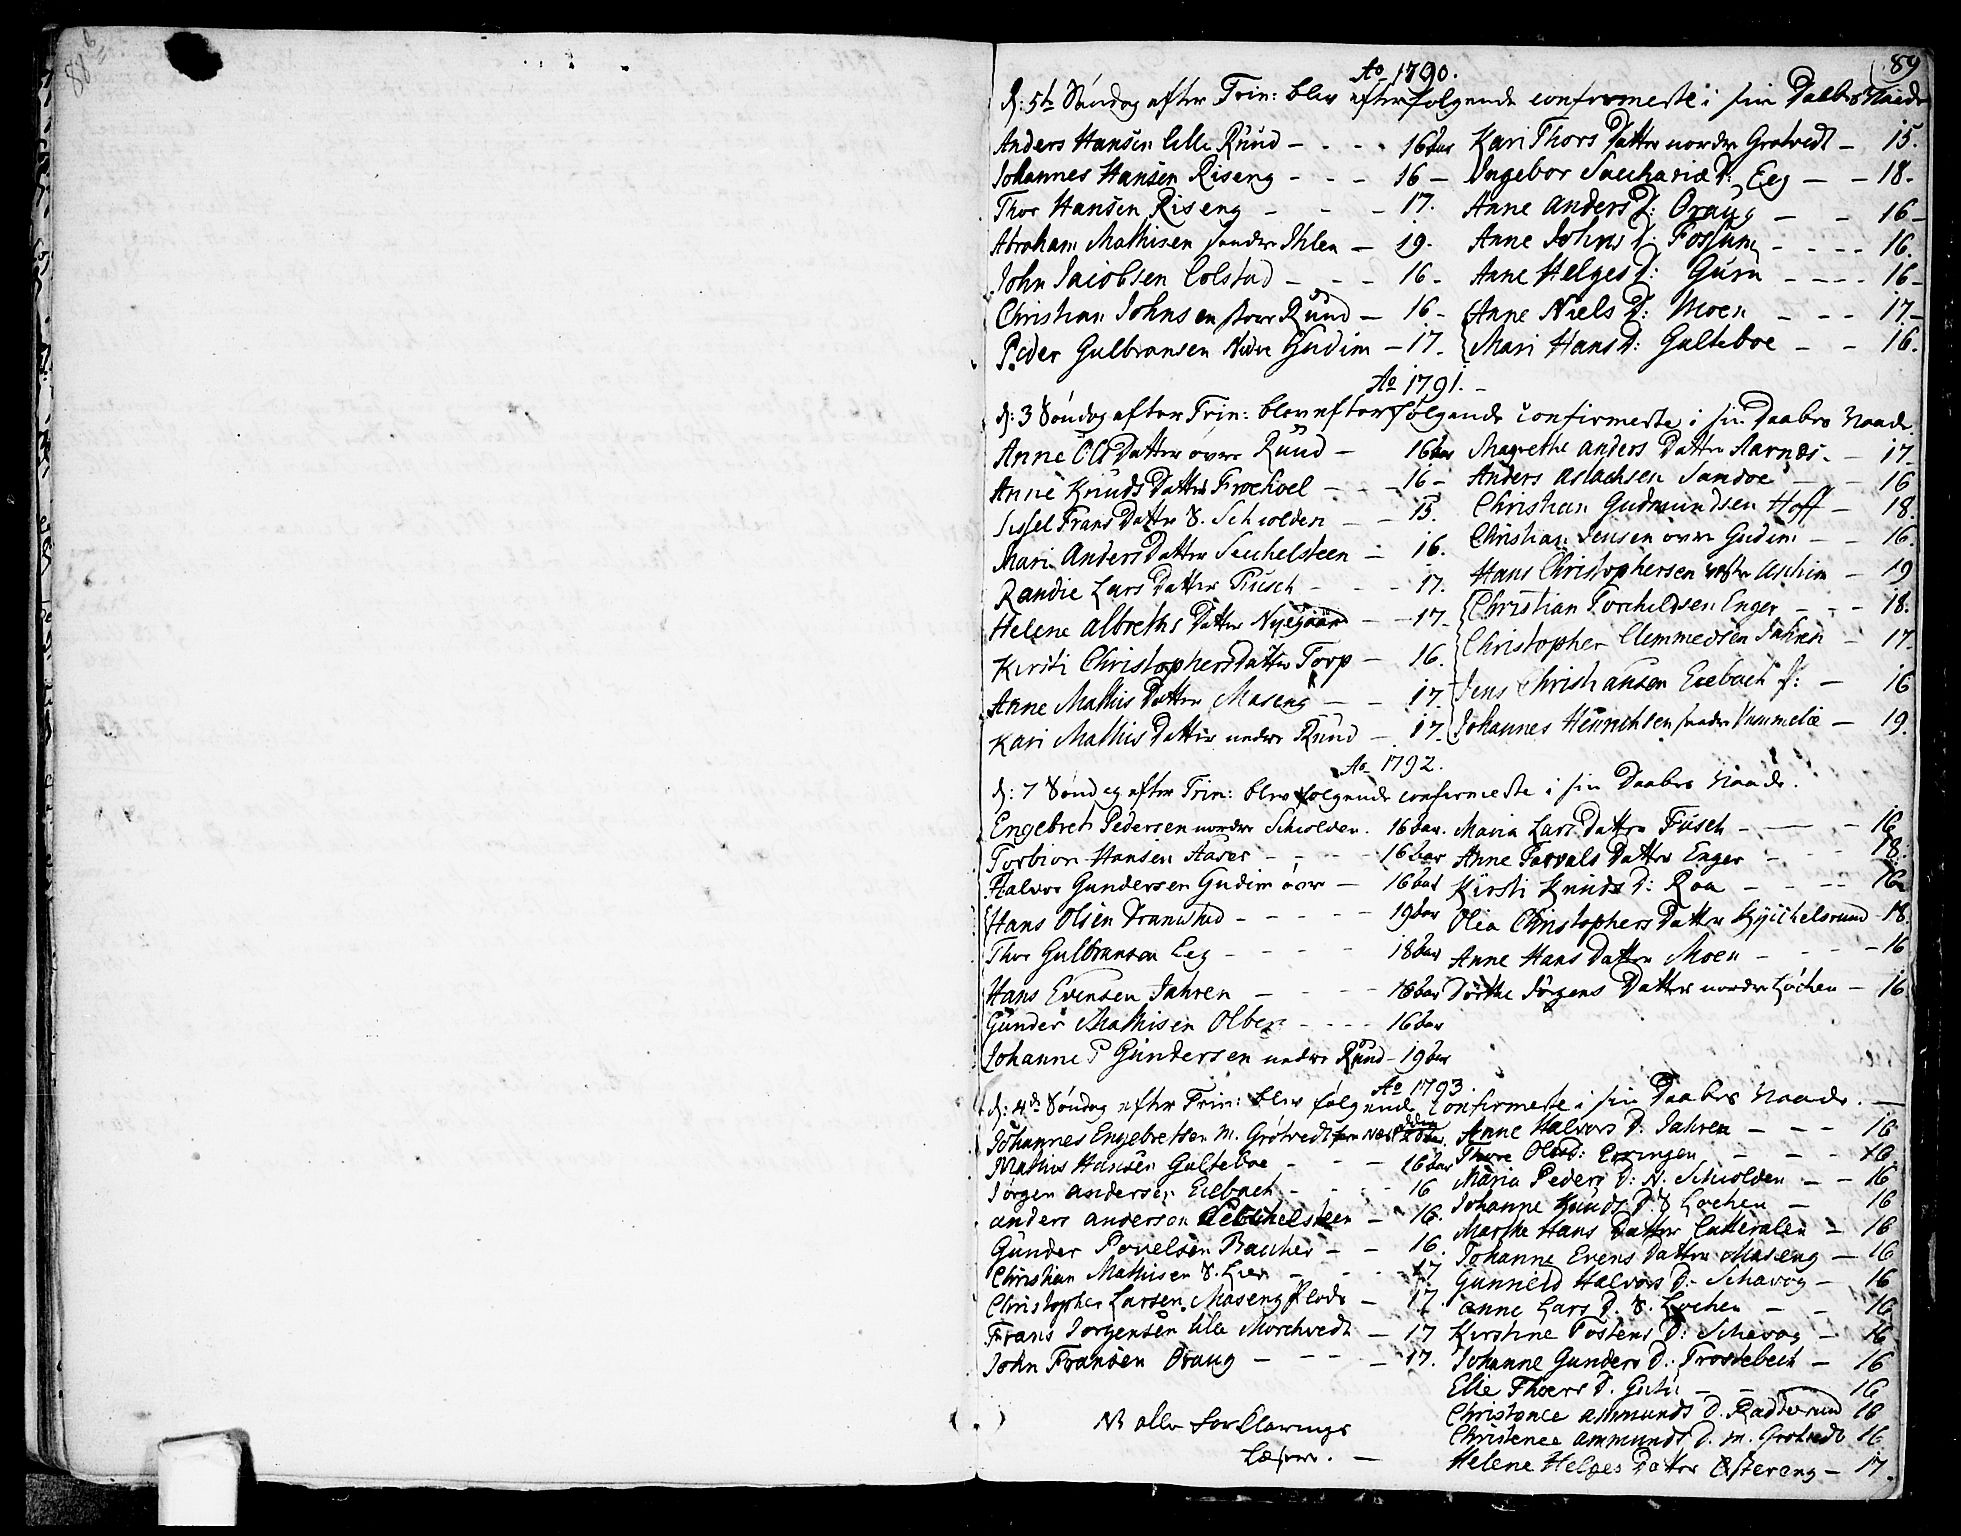 88
89
Ao 1790.
d: 5te Søndag efter Trin: blev efterfølgende confirmerte i sin Daabes Naade
Anders Hansen lille Ruud - - - 16 aar
Johannes Hansen Riseng - - - 16 -
Thor Hansen Riseng - - - 17.
Abraham Mathisen søndre Ihlen - 19.
John Jacobsen Colstad - - - 16 -
Christian Johnsen store Ruud - 16 -
Peder Gulbransen Nedre Gudim - 17.
Kari Thors Datter nordre Grotvedt - 15.
Ingebor Sachariæ D: Eeg - - 18.
Anne Anders D: Oraug - - 16 -
Anne Johns D: Fossum - - - - 16.
Anne Helges D: Guru - - - - 16 -
Anne Niels D: Moen - - - 17 -
Mari Hans D: Galteboe - - 16.
Ao 1791. -
d: 3 Søndag efter Trin: blev efterfølgende confirmerte i sin Daabes Naade.
Anne Ols Datter øvre Ruud - 16 aar
Anne Knuds Datter Frochoel - - - 16 -
Sissel Frans Datter S. Schiolden - - 15.
Mari Anders Datter Sechelsteen - 16.
Randie Lars Datter Fusch - - - 17.
Helene Albreths Datter Nyegaard - - 17 -
Kirsti Christophers Datter Torp - 16.
Anne Mathis Datter Maseng - - 17.
Kari Mathis Datter nedre Ruud - 17.
Magrethe Anders Datter Aarnæs - - 17 -
Anders Aslachsen Sandoe - - 16
Christian Gudmundsen Hoff - 18.
Christian Jensen øvre Gudim - - 16.
Hans Christophersen vestre Aschim - 19
Christian Torchildsen Enger - - - 18.
Christopher Clemmedsen Jahren - 17.
Jens Christiansen Eiebach - 16
Johannes Heinrichsen søndre - 19.
Ao 1792.
d: 7 Søndag efter Trin: blev følgende confirmerte i sin Daabes Naade.
Engebret Pedersen nordre Schiolden. 16 aar.
Torbiørn Hansen Aaser - - - - 16 aar
Halvor Gundersen Gudim øvre - 16 aar
Hans Olsen Tramstad - - - - - 19 aar
Thor Gulbransen Eeg - - - - - 18 aar
Hans Evensen Jahren - - - - 18 aar
Gunder Mathisen Olberg - - - - 16 aar
Johannes Gundersen nedre Ruud - 19 aar
Maria Lars Datter Fusch - - - - 16
Anne Torvals Datter Enger - - - 18.
Kirsti Knuds D: Raa - - - - 16
Olea Christophers Datter Kychelsruud - 18.
Anne Hans Datter Moen - - - - 16
Dorthe Jørgens Datter nordre Løchen - 16
Ao 1793.
d: 4de Søndag efter Trin: blev følgende confirmerte i sin Daabes Naade. -
Johannes Engebretsen M. Grøtvedt
Mathis Hansen Galteboe - - - 16 aar
Jørgen Andersen Eiebach - - - - 16
Anders Andersen Sechelsteen - 16.
Gunder Povelsen Raucher - - 16.
Christian Mathisen S. Lier - - - 17
Christopher Larsen Maseng - 17.
Frans Jørgensen lille Morchvedt - 17
John Fransen Oraug - - - - 17.
NB alle for Klarings
Læsere. -
Anne Halvors D. Jahren - - - 16
Thore Ols D: - - - 16
Maria Peders D: N. Schiolden - - 16
Johanne Knuds D. S Lochen - 16
Marthe Hans Datter Catteralen - 16
Johanne Evens Datter Maseng - 16
Gunnild Halvors D: Schavog - 16
Anne Lars D. S. Lochen - - 16
Kirstine Tostens D: Schavog - 16
Johanne Gunders D: Trostebech - 16
Elie Thoers D. Gutu - - - 16
Christence Ammunds D. Radderuud 16
Christence Ammunds D. M. Grotvedt 16
Helene Helges Datter Østereng - 17.